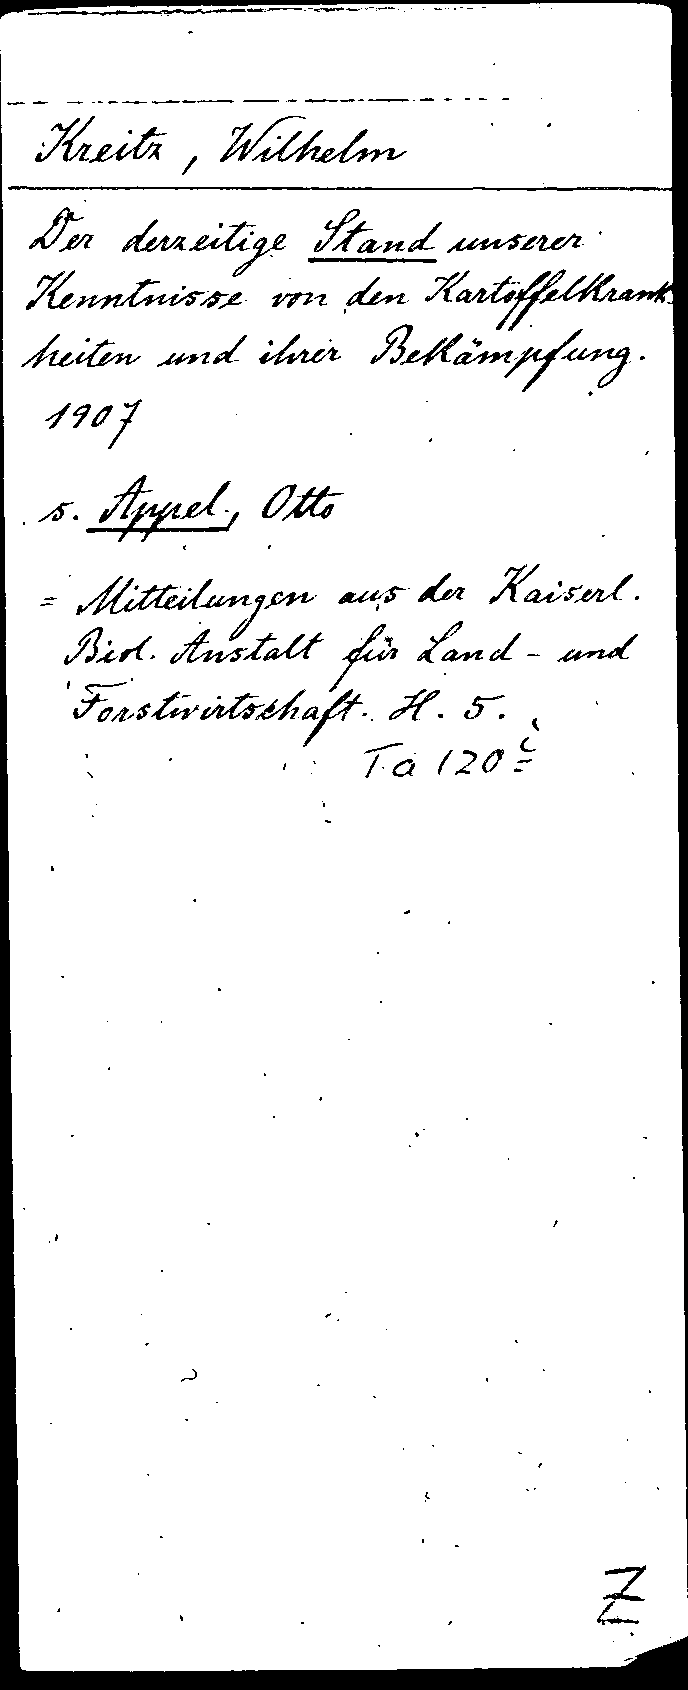 Kreitz, Wilhelm
Der derzeitige Stand unserer
Kenntnisse von den Kartoffelkrank-
heiten und ihrer Bekämpfung.
1907
s. Appel, Otto
= Mitteilungen aus der Kaiserl.
Biol. Anstalt für Land- und
Forstwirtschaft. H. 5.
Ta 120
Z